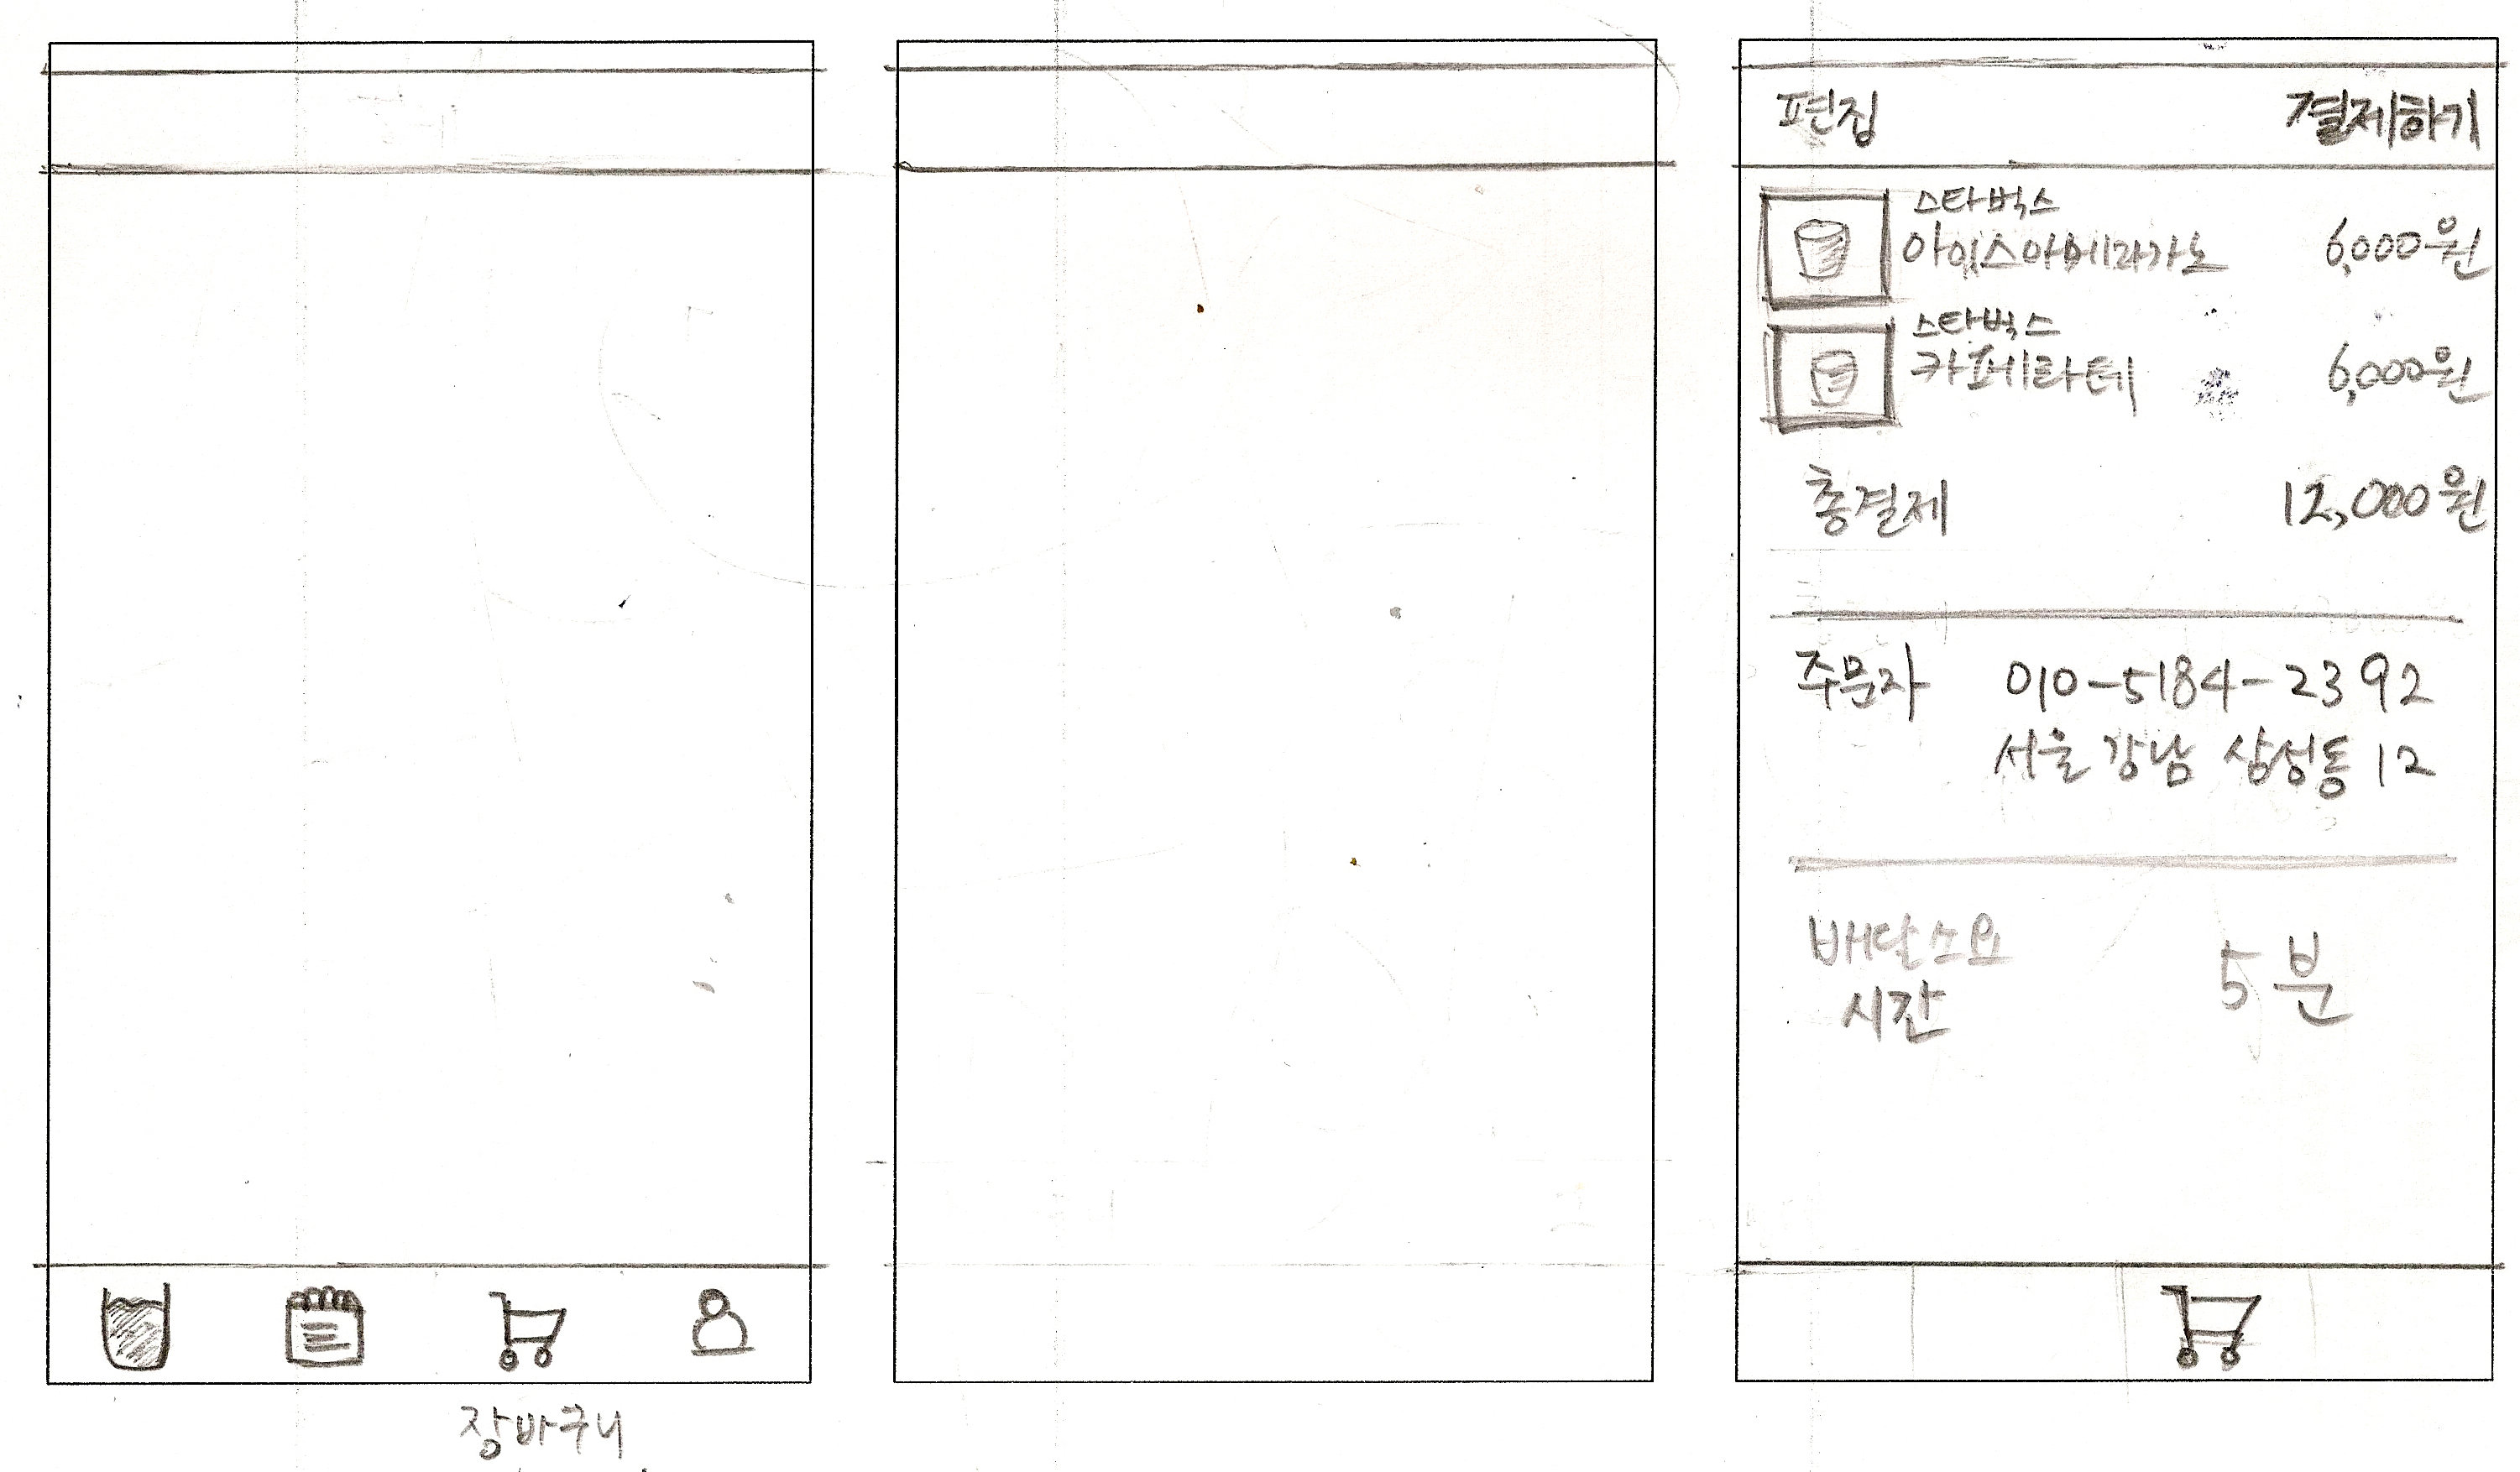 편집 결제하기
스타벅스
아이스아메리카노 6,000원
스타벅스
카페라떼 6,000원
총결제 12,000원
주문자 010-5184-2392
서울 강남 삼성동 12
배달소요
시간 5분
장바구니